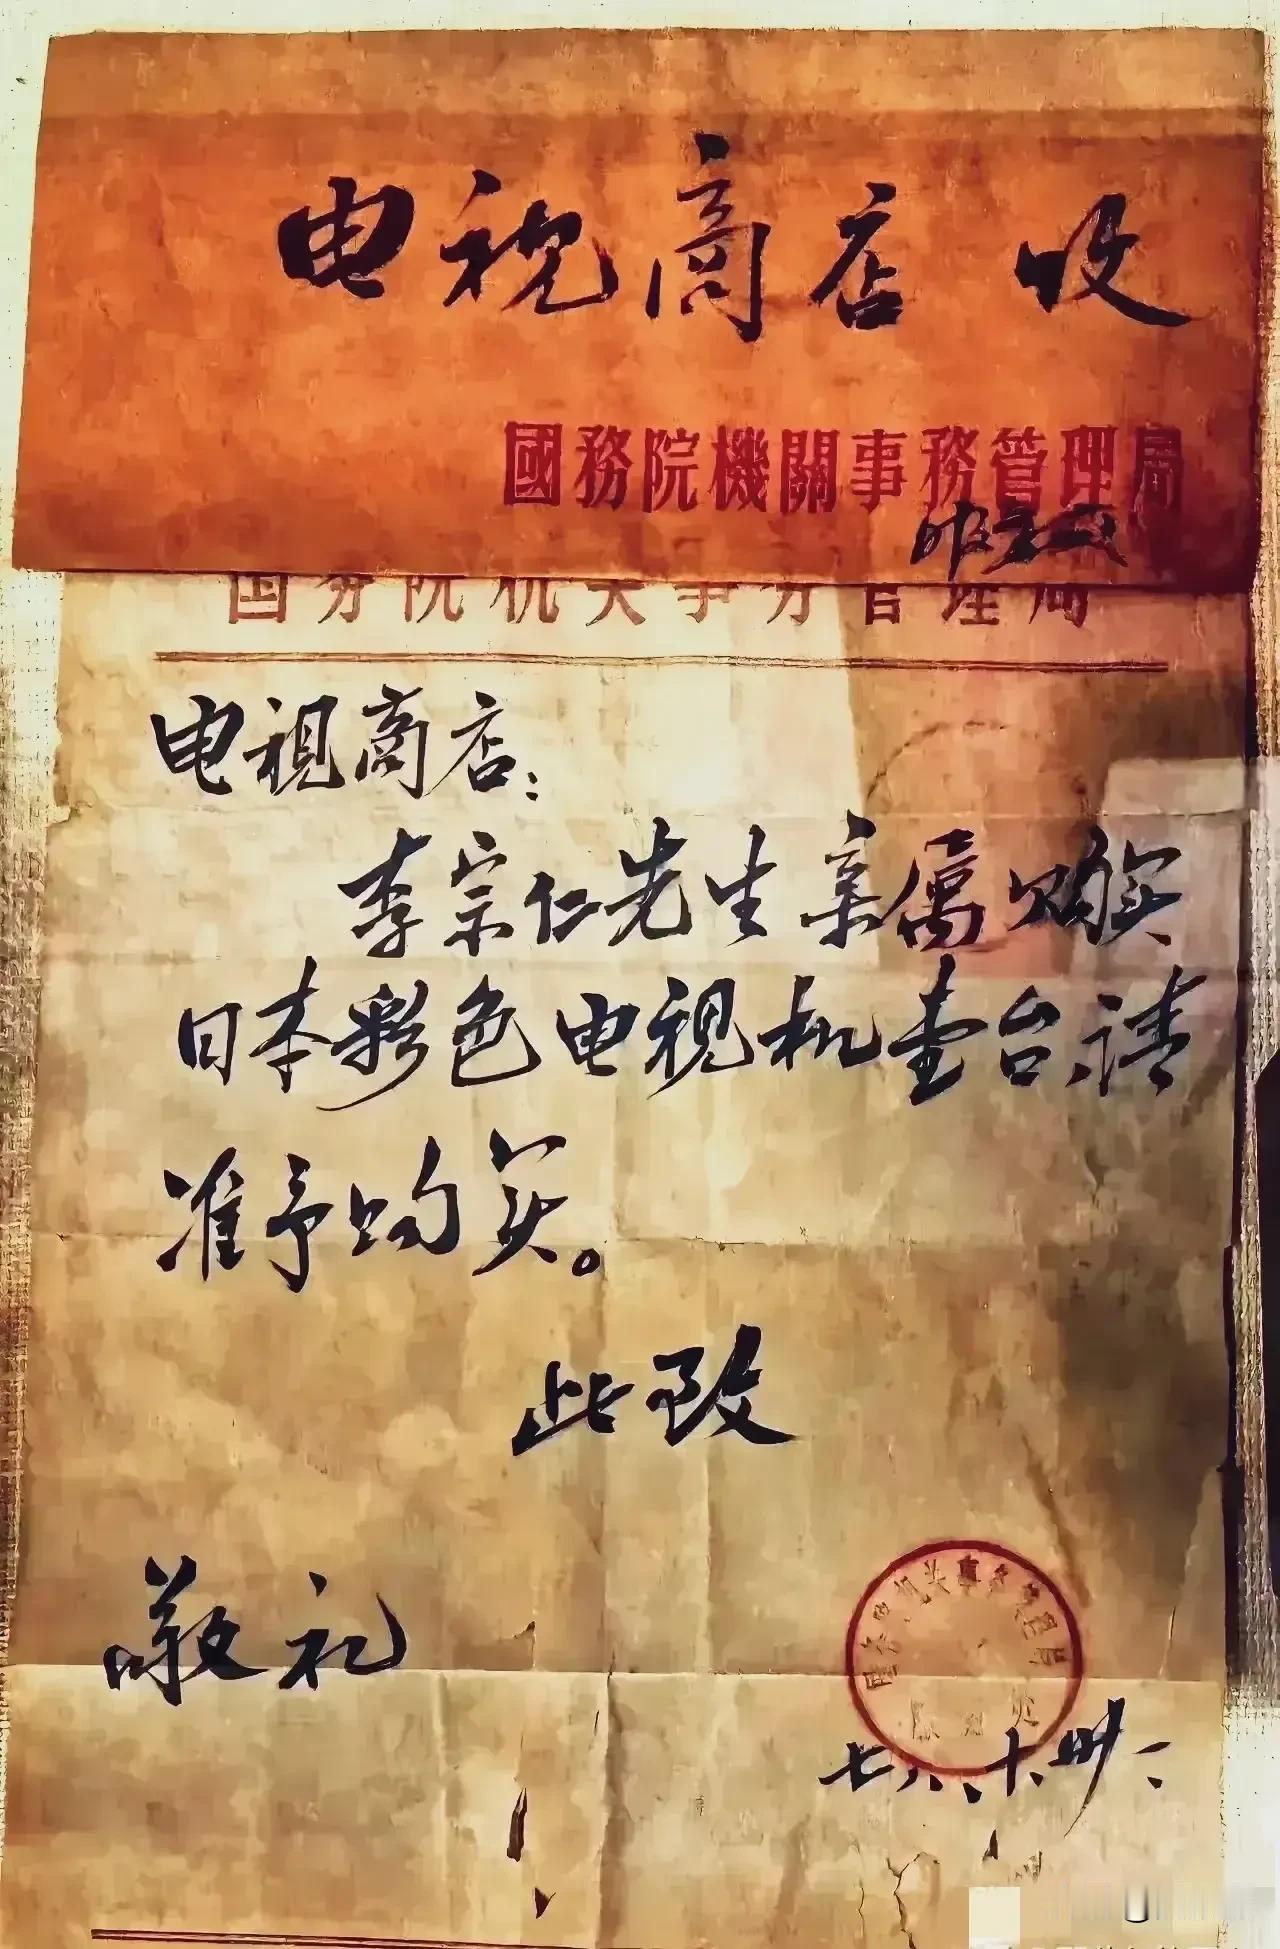 电视商店 收
國務院機關事務管理局
国务院机关事务管理局
电视商店：
李宗仁先生亲属购买
日本彩色电视机壹台，请
准予购买。
此致
敬礼
机关事务管理局
七八、十、